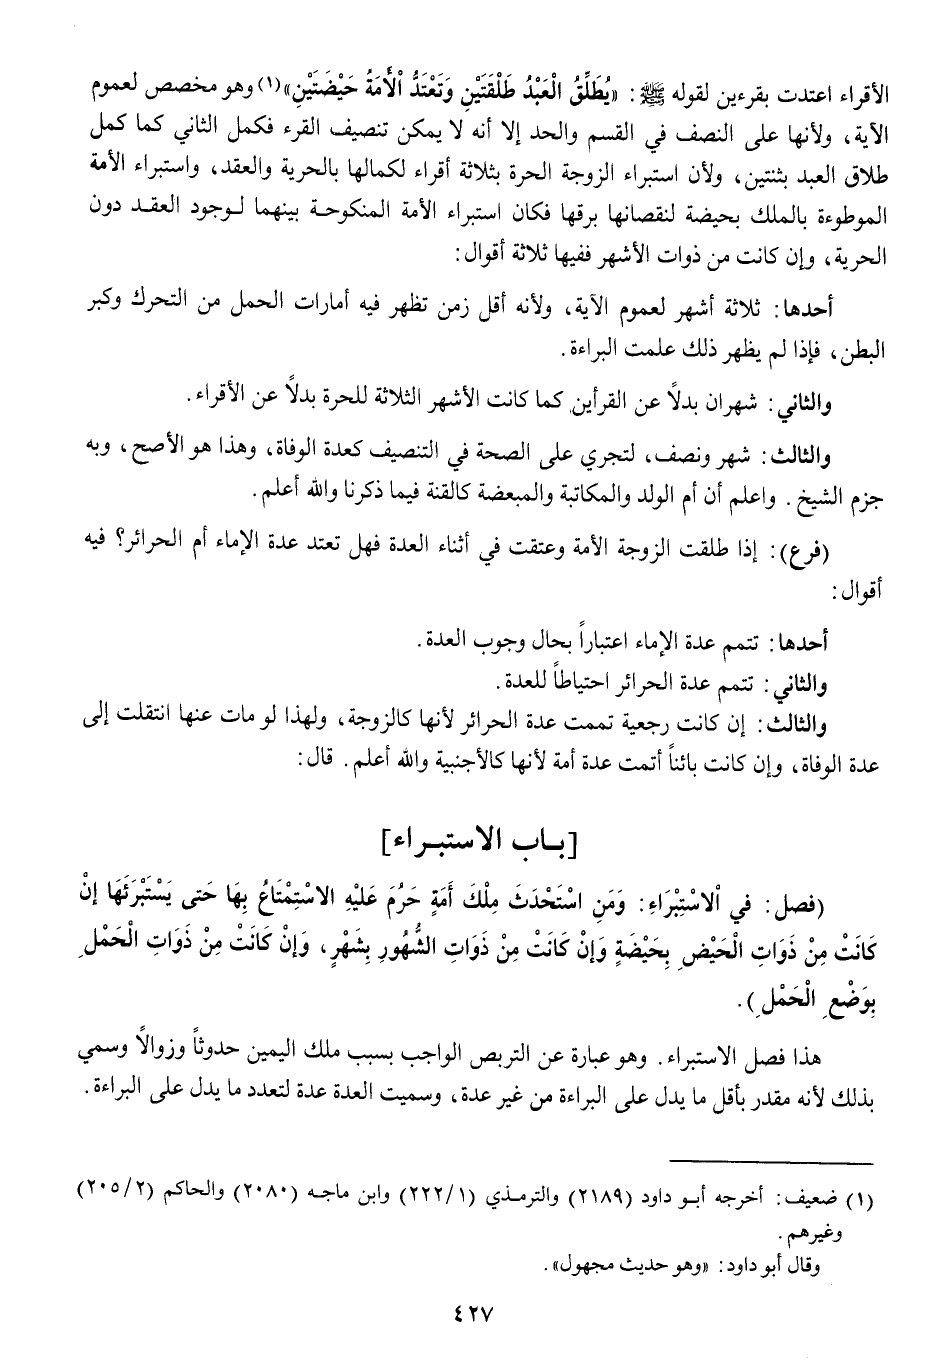 الأقراء اعتدت بقرءين لقوله ﷺ: «يُطَلِّقُ الْعَبْدُ طَلْقَتَيْنِ وَتَعْتَدُّ الْأَمَةُ حَيْضَتَيْنِ»(١) وهو مخصص لعموم
الآية، ولأنها على النصف في القسم والحد إلا أنه لا يمكن تنصيف القرء فكمل الثاني كما كمل
طلاق العبد بثنتين، ولأن استبراء الزوجة الحرة بثلاثة أقراء لكمالها بالحرية والعقد، واستبراء الأمة
الموطوءة بالملك بحيضة لنقصانها برقها فكان استبراء الأمة المنكوحة بينهما لوجود العقد دون
الحرية، وإن كانت من ذوات الأشهر ففيها ثلاثة أقوال:
أحدها: ثلاثة أشهر لعموم الآية، ولأنه أقل زمن تظهر فيه أمارات الحمل من التحرك وكبر
البطن، فإذا لم يظهر ذلك علمت البراءة.
والثاني: شهران بدلاً عن القرأين كما كانت الأشهر الثلاثة للحرة بدلاً عن الأقراء.
والثالث: شهر ونصف، لتجري على الصحة في التنصيف كعدة الوفاة، وهذا هو الأصح، وبه
جزم الشيخ. واعلم أن أم الولد والمكاتبة والمبعضة كالقنة فيما ذكرنا والله أعلم.
(فرع): إذا طلقت الزوجة الأمة وعتقت في أثناء العدة فهل تعتد عدة الإماء أم الحرائر؟ فيه
أقوال:
أحدها: تتمم عدة الإماء اعتباراً بحال وجوب العدة.
والثاني: تتمم عدة الحرائر احتياطاً للعدة.
والثالث: إن كانت رجعية تممت عدة الحرائر لأنها كالزوجة، ولهذا لو مات عنها انتقلت إلى
عدة الوفاة، وإن كانت بائناً أتمت عدة أمة لأنها كالأجنبية والله أعلم. قال:
[باب الاستبراء]
(فصل: في الْاسْتِبْرَاءِ: وَمَنِ اسْتَحْدَثَ مِلْكَ أَمَةٍ حَرُمَ عَلَيْهِ الاسْتِمْتَاعُ بِهَا حَتى يَسْتَبْرِئَهَا إنْ
كَانَتْ مِنْ ذَوَاتِ الْحَيْضِ بِحَيْضَةٍ وَإِنْ كَانَتْ مِنْ ذَوَاتِ الشُّهُورِ بِشَهْرٍ، وَإِنْ كَانَتْ مِنْ ذَوَاتِ الْحَمْلِ
بِوَضْعِ الْحَمْلِ).
هذا فصل الاستبراء. وهو عبارة عن التربص الواجب بسبب ملك اليمين حدوثاً وزوالاً وسمي
بذلك لأنه مقدر بأقل ما يدل على البراءة من غير عدة، وسميت العدة عدة لتعدد ما يدل على البراءة.
(١) ضعيف: أخرجه أبو داود (٢١٨٩) والترمذي (٢٢٢/١) وابن ماجه (٢٠٨٠) والحاكم (٢٠٥/٢)
وغيرهم.
وقال أبو داود: «وهو حديث مجهول».
٤٢٧